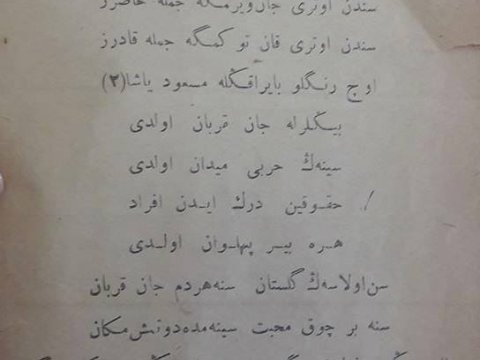 سندن اوتری جان ویرمگه جمله حاضرز
سندن اوتری قان تو کمگه جمله قادرز
اوچ رنگلو بایراقڭله مسعود یاشا(۲)
بیڭلرله جان قربان اولدی
سینه‌ڭ حربی میدان اولدی
حقوقین درك ایدن افراد
هره بیر پهلوان اولدی
سن اولاسه‌ڭ گلستان سنه هردم جان قربان
سنه بر چوق محبت سینه‌مده دوتمش مکان